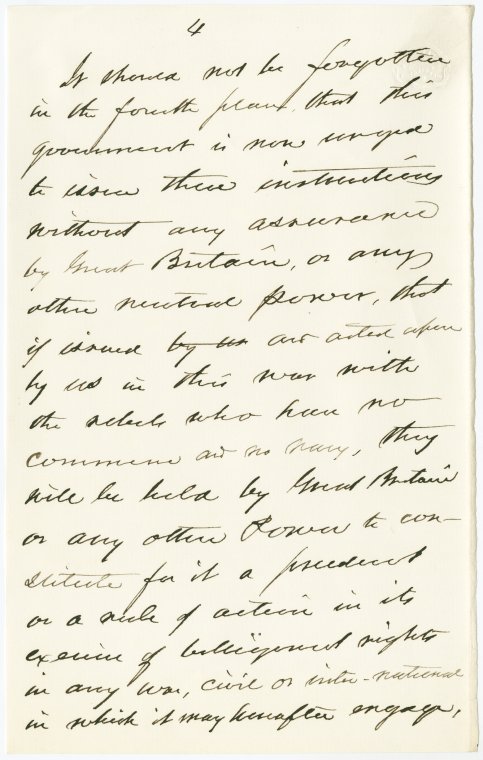 4
It should not be forgotten
in the fourth place, that this
government is now urged
to issue these instructions
without any assurance
by Great Britain, or any
other neutral power, that
if issued by us and acted upon
by us in this war with
the rebels who have no
commerce and no navy, they
will be held by Great Britain
or any other Power to con-
stitute for it a precedent
or a rule of action in its
exercise of belligerent rights
in any war, civil or inter-national
in which it may hereafter engage,